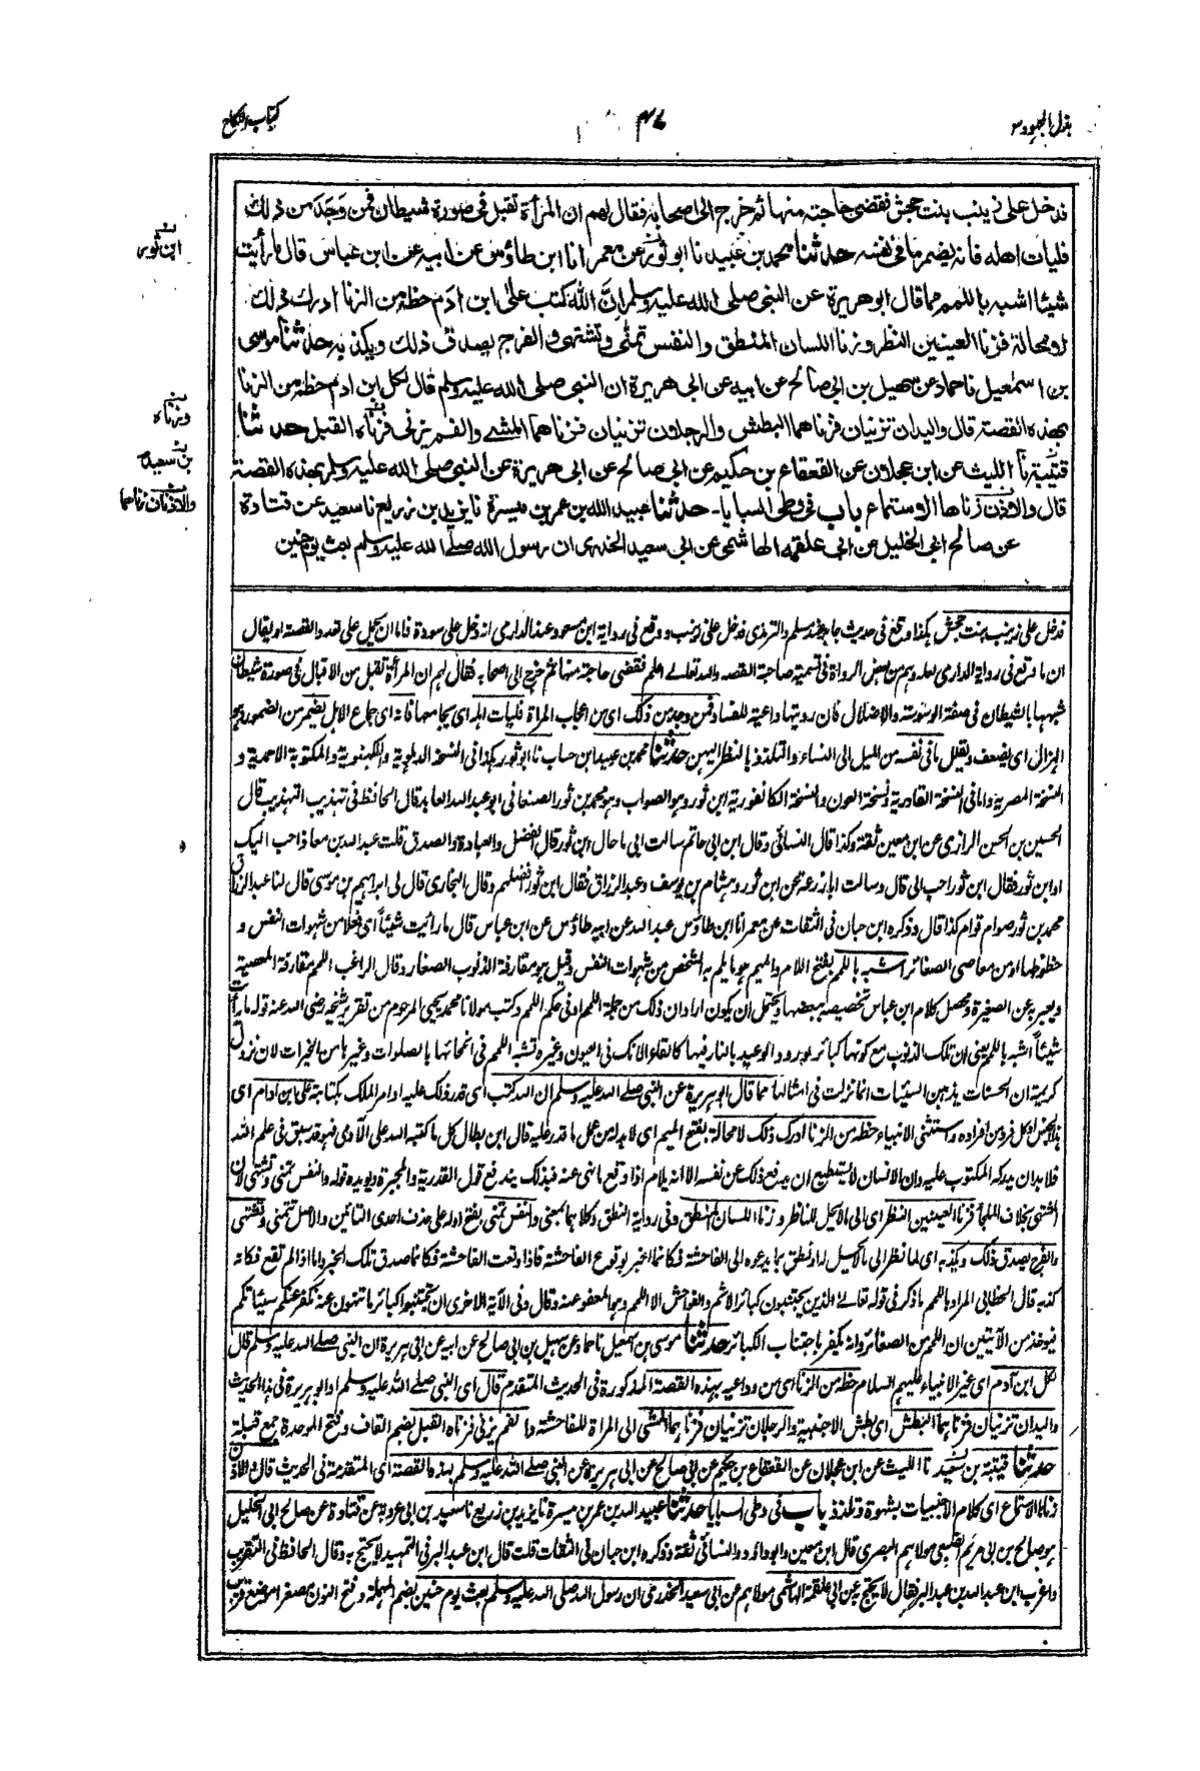 بذل المجهود ٣
٤٧
كتاب النكاح
فدخل على زينب بنت جحش فقضى حاجته منها ثم خرج الى اصحابه فقال لهم ان المرأة تقبل فى صورة شيطان فمن وَجَدَ من ذلك
فليات اهله فانه يضمر ما فى نفسه حدثنا محمد بن عبيد نا ابو ثور عن معمر انا ابن طاؤس عن ابيه عن ابن عباس قال ما رأيت
شيئا اشبه باللمم مما قال ابو هريرة عن النبى صلى الله عليه وسلم انَّ الله كتب على ابن ادم حظه من الزنا ادرك ذلك
لا محالة فزنا العينين النظر وزنا اللسان المنطق والنفس تمنّى وتشتهى والفرج يصدق ذلك ويكذبه حدثنا موسى
بن اسمعيل نا حماد عن سهيل بن ابى صالح عن ابيه عن ابى هريرة ان النبى صلى الله عليه وسلم قال لكل ابن ادم حظه من الزنا
بهذه القصة قال واليدان تزنيان فزناهما البطش والرجلان تزنيان فزناهما المشى والفم يزنى فزناه القبل حدثنا
قتيبة نا الليث عن ابن عجلان عن القعقاع بن حكيم عن ابى صالح عن ابى هريرة عن النبى صلى الله عليه وسلم بهذه القصة
قال والاذن زناها الاستماع باب فى وطى السبايا- حدثنا عبيد الله بن عمر بن ميسرة نا يزيد بن زريع نا سعيد عن قتادة
عن صالح ابى الخليل عن ابى علقمة الهاشمى عن ابى سعيد الخدرى ان رسول الله صلى الله عليه وسلم بعث يوم حنين
ابن ثور
وزناه
بن سعيد
والاذنان زناهما
فدخل على زينب بنت جحش هكذا وقع فى حديث جابر عند مسلم والترمذى فدخل على زينب ووقع فى رواية ابن مسعود عند الدارمى انه دخل على سودة فاما ان يحمل على تعدد القصة او يقال
ان ما وقع فى رواية الدارمى لعله وهم من بعض الرواة فى تسمية صاحبة القصه والله تعالى اعلم فقضى حاجته منها ثم خرج الى اصحابه فقال لهم ان المرأة تقبل من الاقبال فى صورة شيطان
شبهها بالشيطان فى صفة الوسوسة والاضلال فان رويتها داعية للفساد فمن وجد من ذلك اى من اعجاب المرأة فليات اهله اى يجامعها فانه اى جماع الاهل يضمر من الضمور وهو
الهزال اى يضعف ويقلل ما فى نفسه من الميل الى النساء والتلذذ بالنظر اليهن حدثنا محمد بن عبيد ابن حساب نا ابو ثور هكذا فى النسخة الدهلوية واللكهنوية والمكتوبة الاحمدية و
النسخة المصرية واما فى النسخة القادرية ونسخة العون والنسخة الكانفورية ابن ثور وهو الصواب وهو محمد بن ثور الصنعانى ابو عبد الله العابد قال الحافظ فى تهذيب التهذيب قال
الحسين بن الحسن الرازى عن ابن معين ثقة وكذا قال النسائى وقال ابن ابى حاتم سالت ابى ما حال ابن ثور قال الفضل والعبادة والصدق قلت عبد الله بن معاذ احب اليك
او ابن ثور فقال ابن ثور احب الى قال وسالت ابا زرعة عن ابن ثور وهشام بن يوسف وعبد الرزاق فقال ابن ثور افضلهم وقال البخارى قال لى ابراهيم بن موسى قال لنا عبد الرزاق
محمد بن ثور صوام قوام كذا قال وذكره ابن حبان فى الثقات عن معمر انا ابن طاؤس عبد الله عن ابيه طاؤس عن ابن عباس قال ما رأيت شيئاً اى فعلا من شهوات النفس و
حظوظها او من معاصى الصغائر اشبه باللمم بفتح اللام والميم هو ما يلم به الشخص من شهوات النفس وقيل هو مقارفة الذنوب الصغار وقال الراغب اللمم مقارفة المعصية
ويعبر به عن الصغيرة ومحصل كلام ابن عباس تخصيصه ببعضها ويحتمل ان يكون اراد ان ذلك من جملة اللمم او فى حكم اللمم وكتب مولانا محمد يحيى المرحوم من تقرير شيخه رضى الله عنه قوله ما رأيت
شيئاً اشبه باللمم يعنى ان تلك الذنوب مع كونها كبائر لورود الوعيد بالنار فيها كالقاء الانك فى العيون وغيره تشبه اللمم فى انمحائها بالصلوات وغيرها من الخيرات لان نزول
كريمة ان الحسنات يذهبن السيئات انما نزلت فى امثالها مما قال ابو هريرة عن النبى صلى الله عليه وسلم ان الله كتب اى قدر ذلك عليه او امر الملك بكتابة على ابن ادم اى
هذا الجنس او كل فرد من افراده واستثنى الانبياء حظه من الزنا ادرك ذلك لا محالة بفتح الميم اى لا بد له من عمل ما قدر عليه قال ابن بطال كل ما كتبه الله على الآدمى فهو قد سبق فى علم الله
فلا بد ان يدركه المكتوب عليه وان الانسان لا يستطيع ان يدفع ذلك عن نفسه الا انه يلام اذا وقع ما نهى عنه فبذلك يندفع قول القدرية والمجبرة ويويده قوله والنفس تمنى وتشتهى لان
المشتهى بخلاف الملجا فزنا العينين النظر اى الى ما لا يحل للناظر وزنا اللسان المنطق وفى رواية النطق وكلاهما بمعنى والنفس تمنى بفتح اوله على حذف احدى التائين والاصل تتمنى وتشتهى
والفرج يصدق ذلك ويكذبه اى لما نظر الى ما لا يحل له او نطق بما يدعوه الى الفاحشة فكانما اخبر بوقوع الفاحشة فاذا وقعت الفاحشة فكانما صدق تلك الخبر واما اذا لم تقع فكانه
كذبه قال الخطابى المراد باللمم ما ذكر فى قوله تعالى الذين يجتنبون كبائر الاثم والفواحش الا اللمم وهو المعفو عنه وقال وفى الآية الاخرى ان تجتنبوا كبائر ما تنهون عنه نكفر عنكم سيئاتكم
فيوخذ من الآيتين ان اللمم من الصغائر وانه يكفر باجتناب الكبائر حدثنا موسى بن اسمعيل نا حماد عن سهيل بن ابى صالح عن ابيه عن ابى هريرة ان النبى صلى الله عليه وسلم قال
لكل ابن آدم اى غير الانبياء عليهم السلام حظه من الزنا اى من دواعيه بهذه القصة المذكورة فى الحديث المتقدم قال اى النبى صلى الله عليه وسلم او ابو هريرة فى هذا الحديث
واليدان تزنيان فزناهما البطش اى بطش الاجنبية والرجلان تزنيان فزناهما المشى الى المرأة للفاحشة والفم يزنى فزناه القبل بضم القاف وفتح الموحدة جمع قبلة
حدثنا قتيبة بن سعيد نا الليث عن ابن عجلان عن القعقاع بن حكيم عن ابى صالح عن ابى هريرة عن النبى صلى الله عليه وسلم بهذه القصة اى المتقدمة فى الحديث قال والاذن
زناها الاستماع اى كلام الاجنبيات بشهوة وتلذذ باب فى وطى السبايا حدثنا عبيد الله بن عمر بن ميسرة نا يزيد بن زريع نا سعيد بن ابى عروبة عن قتادة عن صالح ابى الخليل
هو صالح بن ابى مريم الضبعى مولاهم البصرى قال ابن معين وابو داؤد والنسائى ثقة وذكره ابن حبان فى الثقات قلت قال ابن عبد البر فى التمهيد لا يحتج به وقال الحافظ فى التقريب
واغرب ابن عبد البر فقال لا يحتج به عن ابى علقمة الهاشمى مولاهم عن ابى سعيد الخدرى ان رسول الله صلى الله عليه وسلم بعث يوم حنين بضم المهملة وفتح النون مصغرا موضع قريب